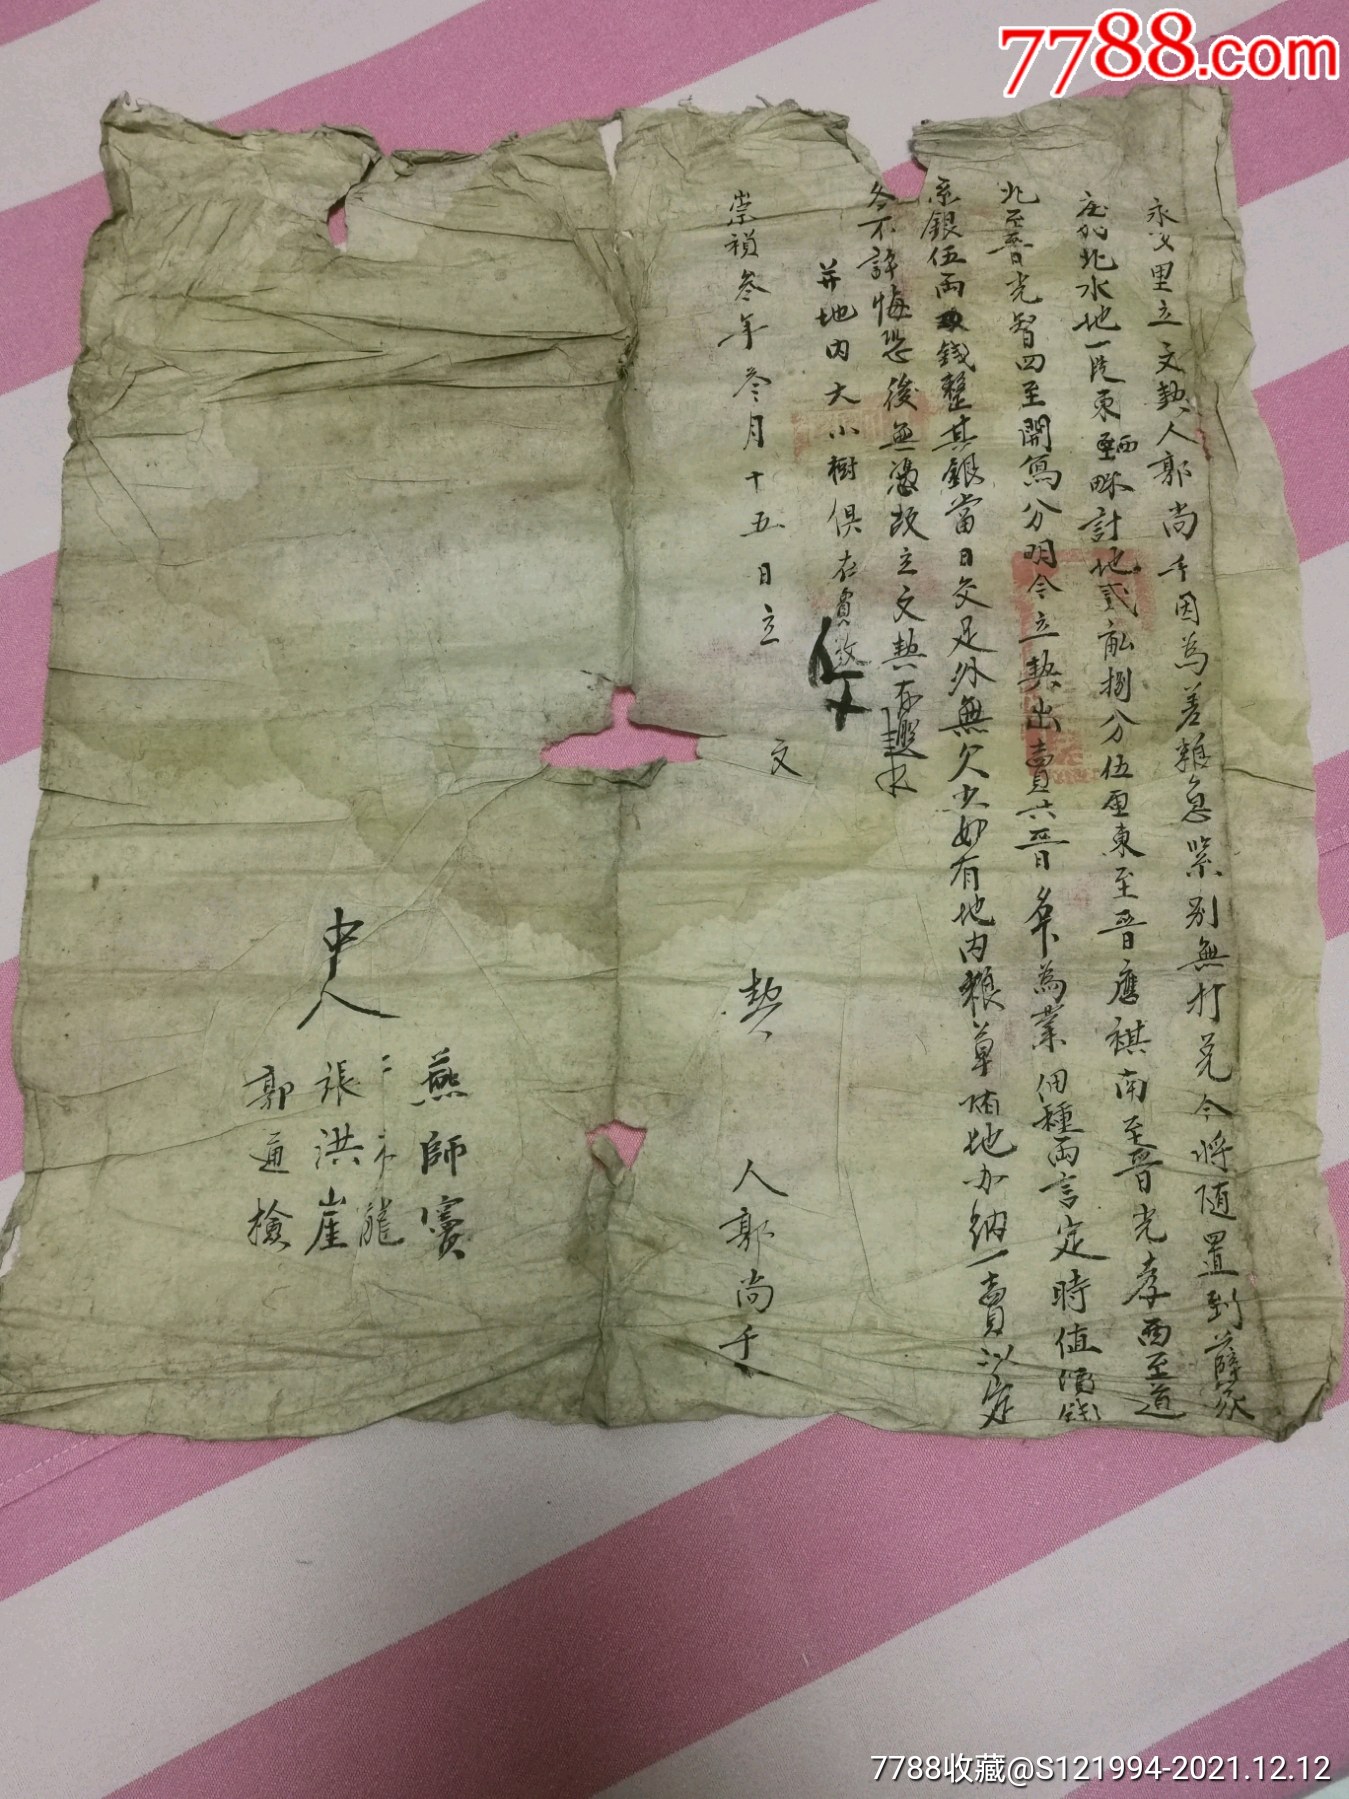 7788.com
里立文契人郭尚千因為差粮急紧別無打兑今將随置到薛家
庄北水地一段東西畛計地貳畝捌分伍厘東至晋應祺南至晋光孝西至道
北至晋光智四至開寫分明今立契出賣六晋名下為業佃種両言定時值價錢
銀伍両錢整其銀當日交足外無欠少如有地内粮草随地办納一賣以定
各不許悔恐後無憑故立文契存照
并地内大小樹俱在賣数
崇禎叁年叁月十五日立
文契人郭尚千
中人
燕師賓
龍
張洪崖
郭通檢
7788收藏@S121994-2021.12.12